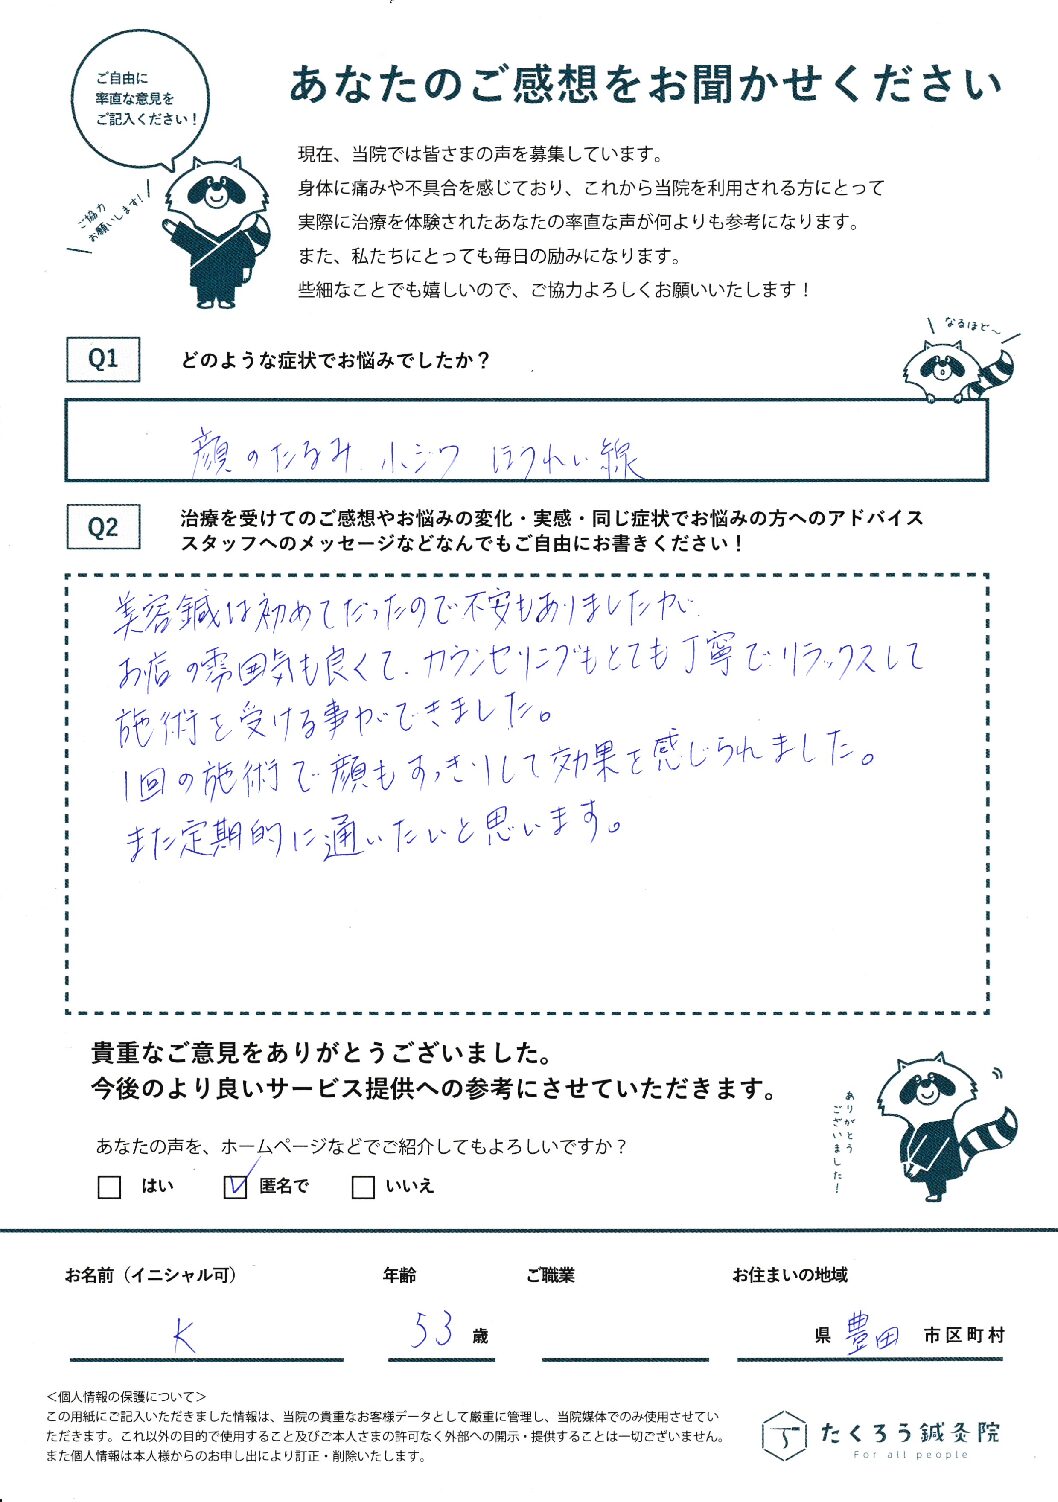 ご自由に
率直な意見を
ご記入ください！
あなたのご感想をお聞かせください
現在、当院では皆さまの声を募集しています。
身体に痛みや不具合を感じており、これから当院を利用される方にとって
実際に治療を体験されたあなたの率直な声が何よりも参考になります。
また、私たちにとっても毎日の励みになります。
些細なことでも嬉しいので、ご協力よろしくお願いいたします！
ご協力
お願いします！
Q1 どのような症状でお悩みでしたか？
なるほど〜
顔のたるみ 小ジワ ほうれい線
Q2 治療を受けてのご感想やお悩みの変化・実感・同じ症状でお悩みの方へのアドバイス
スタッフへのメッセージなどなんでもご自由にお書きください！
美容鍼は初めてだったので不安もありましたが
お店の雰囲気も良くて、カウンセリングもとても丁寧でリラックスして
施術を受ける事ができました。
1回の施術で顔もすっきりして効果を感じられました。
また定期的に通いたいと思います。
貴重なご意見をありがとうございました。
今後のより良いサービス提供への参考にさせていただきます。
ありがとう
ございました！
あなたの声を、ホームページなどでご紹介してもよろしいですか？
はい 匿名で いいえ
お名前（イニシャル可） 年齢 ご職業 お住まいの地域
K 53 歳 県 豊田 市区町村
＜個人情報の保護について＞
この用紙にご記入いただきました情報は、当院の貴重なお客様データとして厳重に管理し、当院媒体でのみ使用させてい
ただきます。これ以外の目的で使用すること及びご本人さまの許可なく外部への開示・提供することは一切ございません。
また個人情報は本人様からのお申し出により訂正・削除いたします。
たくろう鍼灸院
For all people